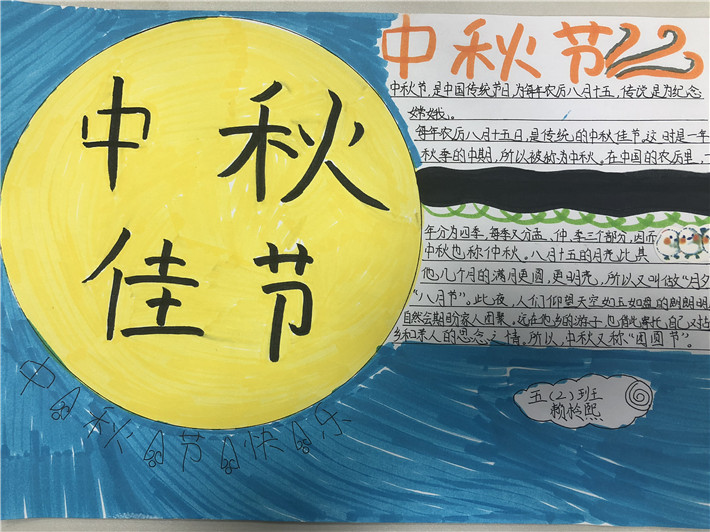 中秋
佳节
中秋节快乐
中秋节
中秋节,是中国传统节日,为每年农历八月十五,传说是为纪念
嫦娥。
每年农历八月十五日,是传统的中秋佳节。这时是一年
秋季的中期,所以被称为中秋。在中国的农历里,一
年分为四季,每季又分孟、仲、季三个部分,因而
中秋也称仲秋。八月十五的月亮比其
他几个月的满月更圆,更明亮,所以又叫做“月夕
“八月节”。此夜,人们仰望天空如玉如盘的朗朗明
自然会期盼家人团聚。远在他乡的游子也借此寄托自己对故
乡和亲人的思念之情,所以,中秋又称“团圆节”。
五(2)班
赖柃熙